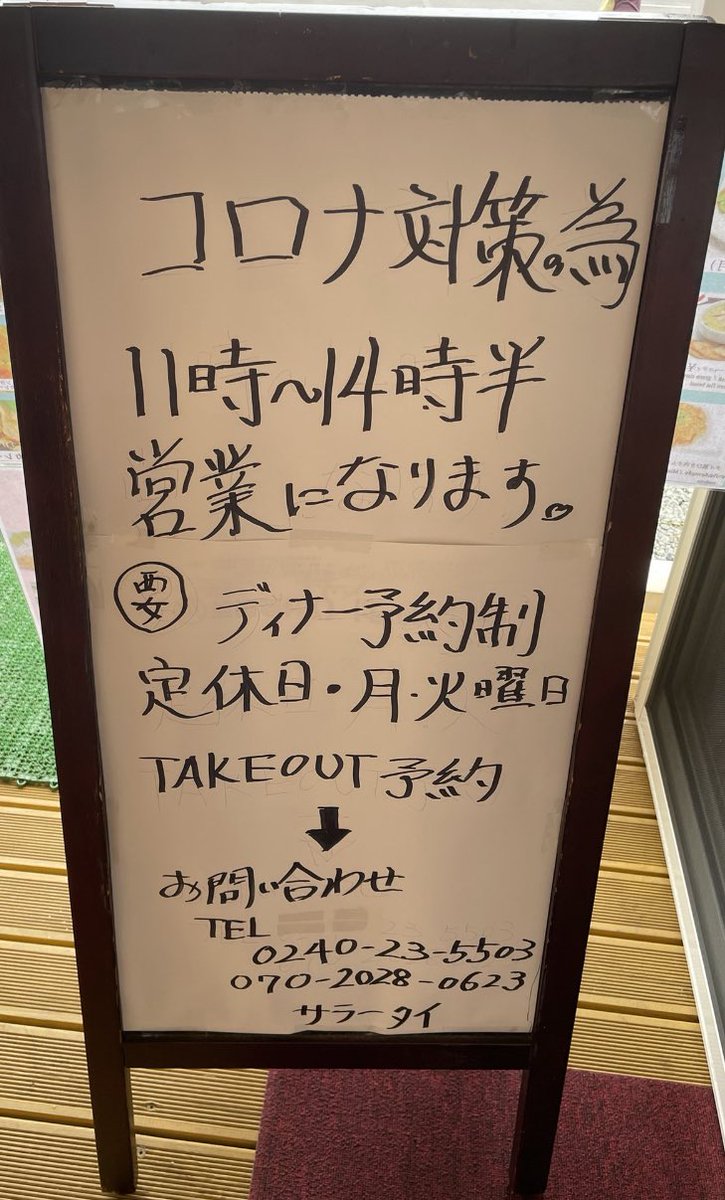 コロナ対策の為
11時~14時半
営業になります。
要 ディナー予約制
定休日・月・火曜日
TAKEOUT 予約
お問い合わせ
TEL
0240-23-5503
070-2028-0623
サラータイ